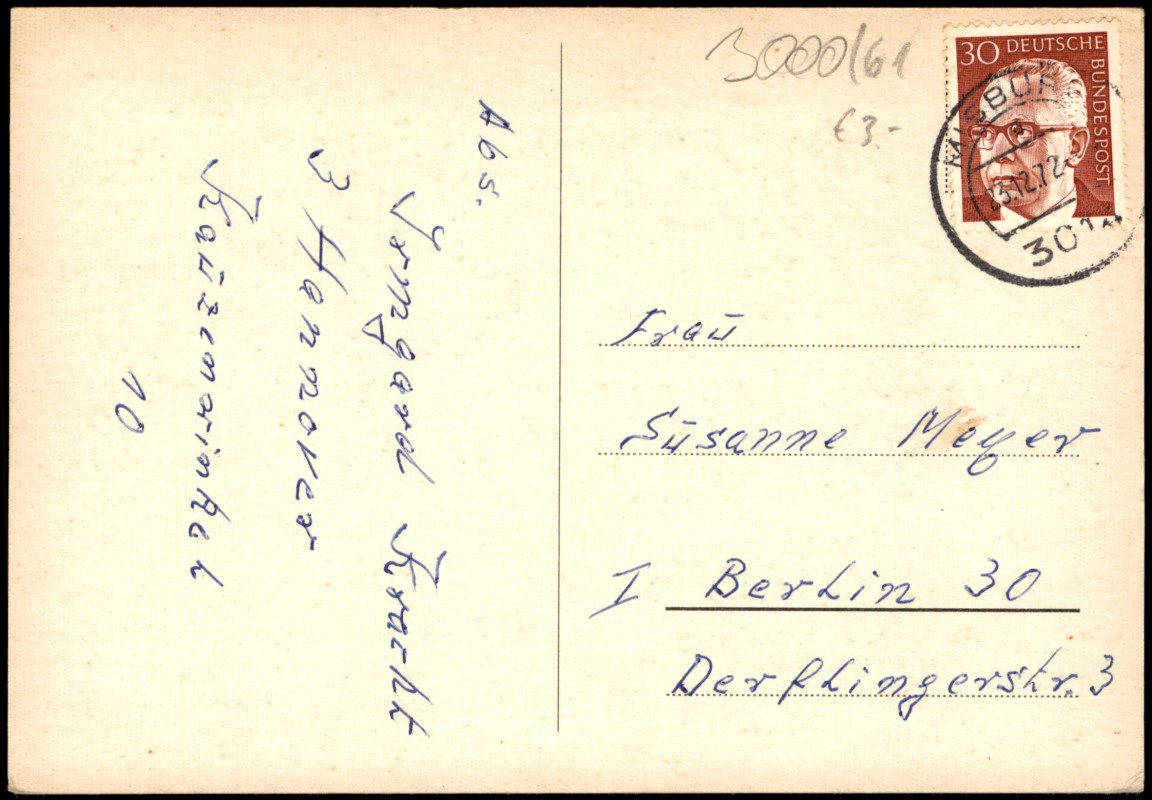 3000/61
€ 3.-
30 DEUTSCHE
BUNDESPOST
MISBURG
23.12.72
301
Abs.
Irmgard Kracht
3 Hannover
10
Frau
Susanne Meyer
I Berlin 30
Derflingerstr. 3